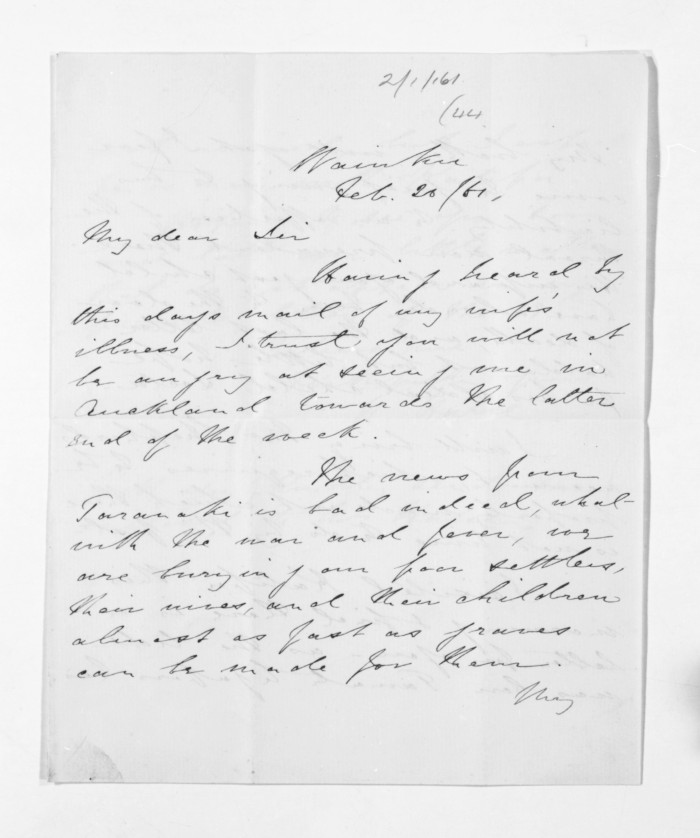 2/1/61
(44
Waiuku
Feb. 20/61,
My dear Sir
Having heard by
this days mail of my wife's
illness, I trust, you will not
be angry at seeing me in
Auckland towards the latter
end of the week.
The news from
Taranaki is bad indeed, what
with the war and fever, we
are burying our poor settlers,
their wives, and their children
almost as fast as graves
can be made for them.